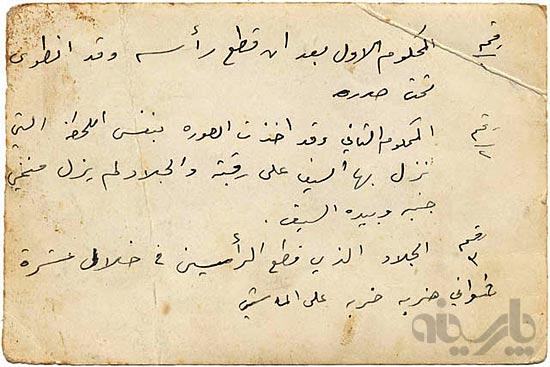 رقم ١ المحكوم الاول بعد ان قطع رأسه وقد انطوى
تحت صدره
رقم ٢ المحكوم الثاني وقد اخذت الصوره بنفس اللحظة التي
نزل بها السيف على رقبة والجلاد لم يزل منحني
جنبه وبيده السيف .
رقم ٣ الجلاد الذي قطع الرأسين في خلال عشرة
ثواني ضربه ضربه على الماشي
پارسینه